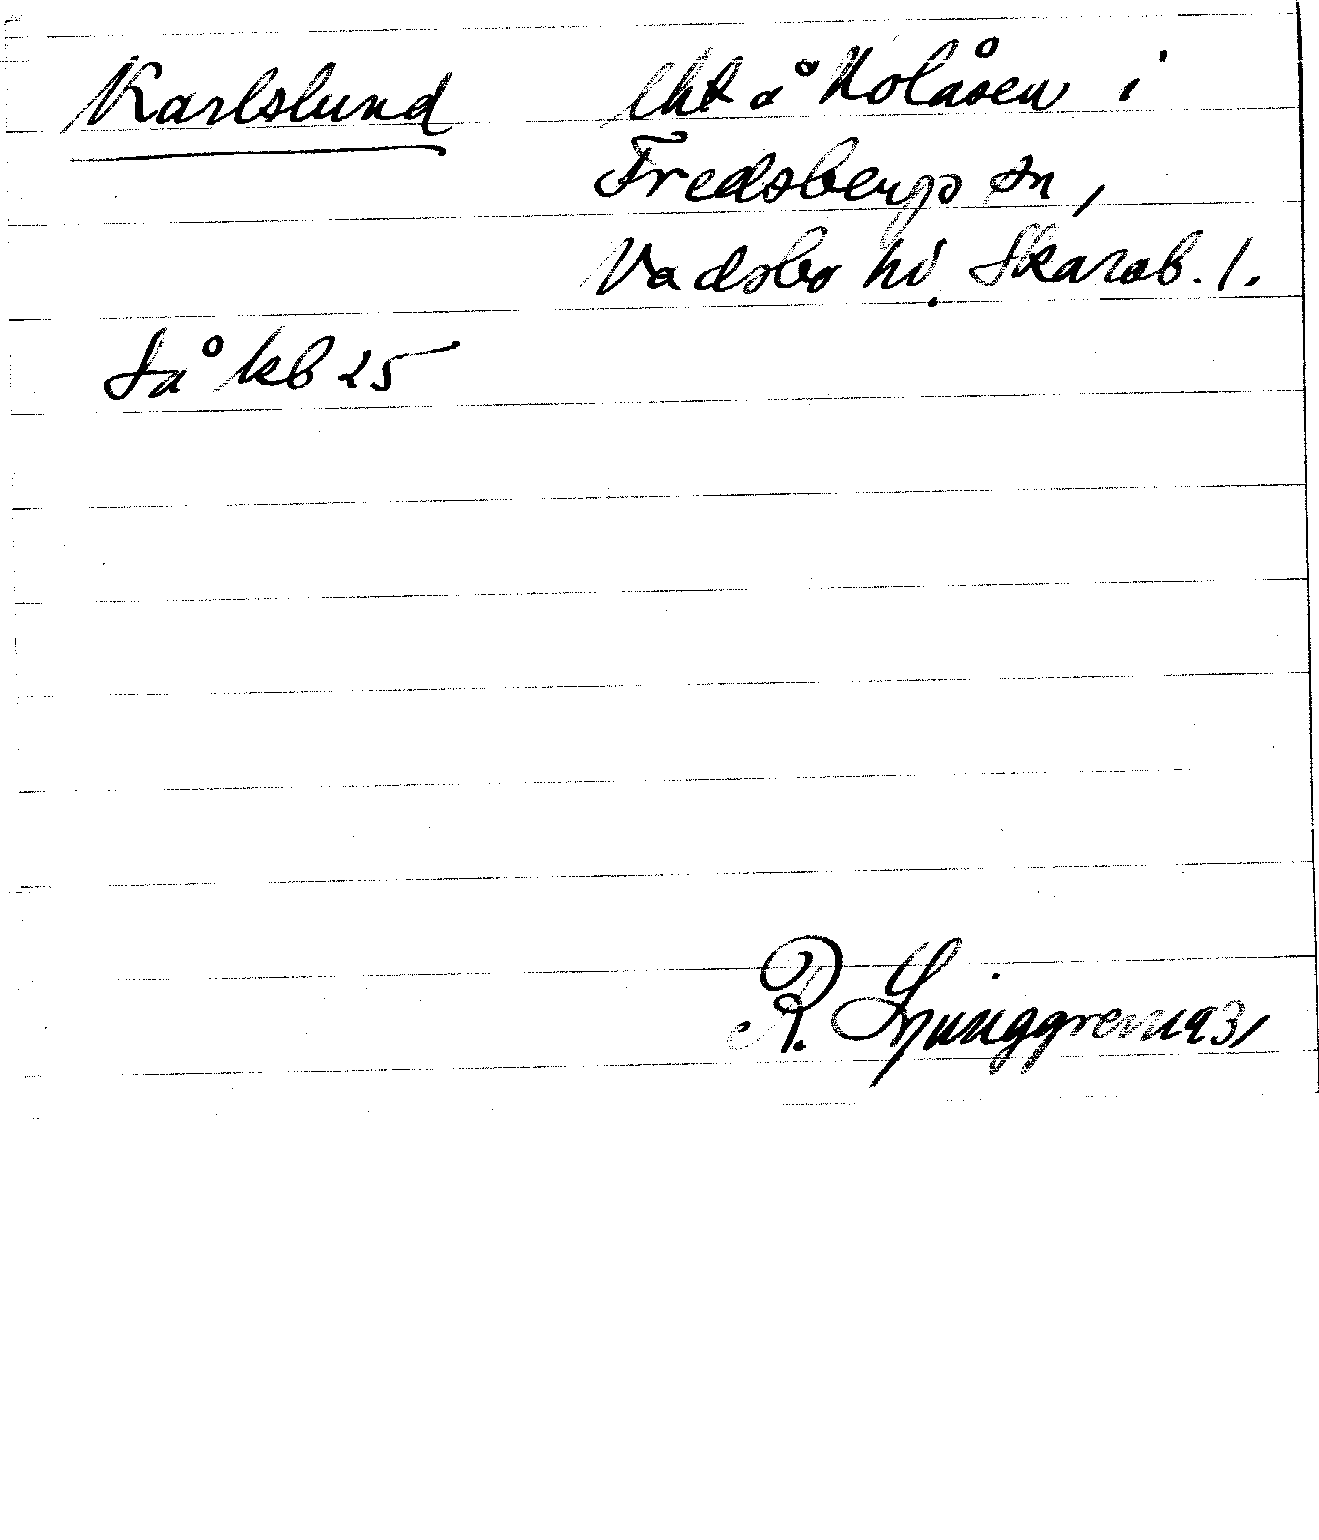 Karlslund
lht å Kolåsen i
Fredsbergs sn,
Vadsbo hd. Skarab. l.
Så kb 25
R. Ljunggren 1931